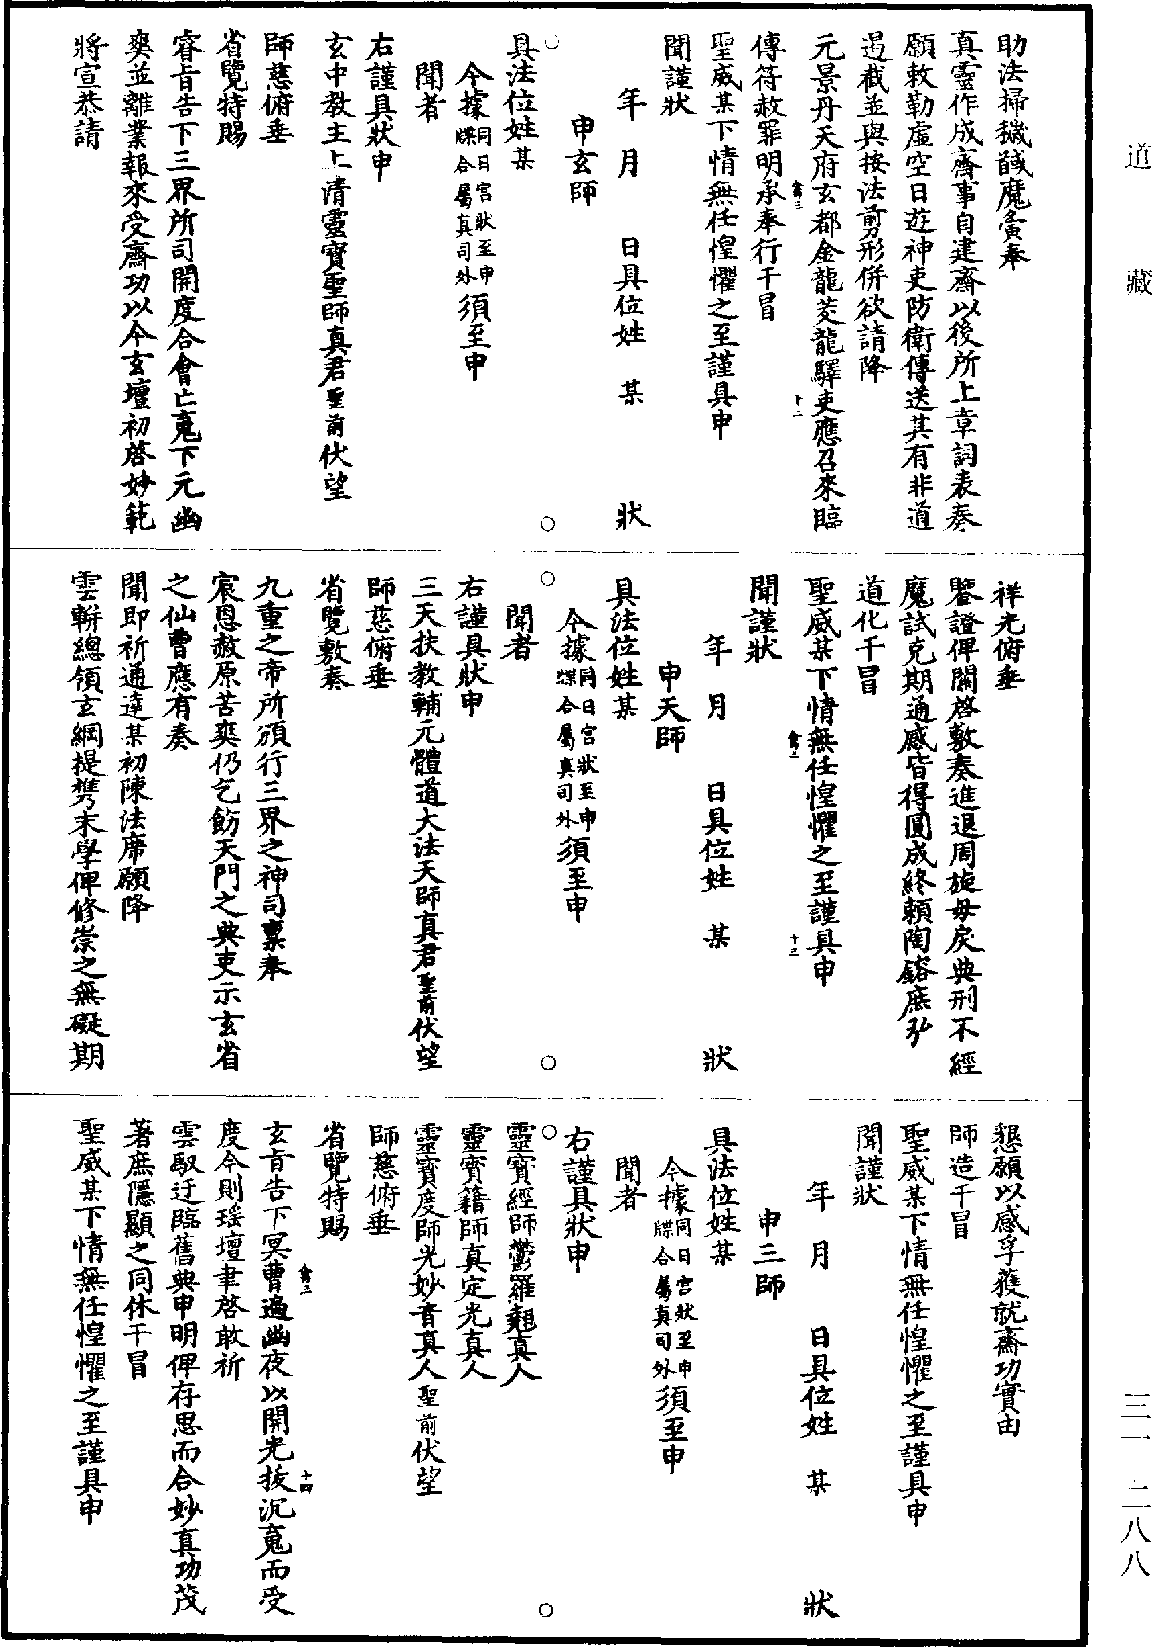 道藏
助法掃穢馘魔兼奉
真靈作成齋事自建齋以後所上章詞表奏
願敕勒虛空日遊神吏防衛傳送其有非道
遏截並與按法剪形併欲請降
元景丹天府玄都金龍茭龍驛吏應召來臨
傳符赦罪明承奉行干冒
聖威某下情無任惶懼之至謹具申
聞謹狀
年 月 日具位姓 某 狀
申玄師
具法位姓某
今據同日宮狀至申牒合屬真司外須至申
聞者
右謹具狀申
玄中教主上清靈寶聖師真君聖前伏望
師慈俯垂
省覽特賜
睿旨告下三界所司開度合會亡䰟下元幽
爽並離業報來受齋功以今玄壇初啓妙範
將宣恭請
祥光俯垂
鑒證俾關啓敷奏進退周旋毋戾典刑不經
魔試克期通感皆得圓成終賴陶鎔庶弘
道化干冒
聖威某下情無任惶懼之至謹具申
聞謹狀
年 月 日具位姓 某 狀
申天師
具法位姓某
今據同日宮狀至申牒合屬真司外須至申
聞者
右謹具狀申
三天扶教輔元體道大法天師真君聖前伏望
師慈俯垂
省覽敷奏
九重之帝所頒行三界之神司稟奉
宸恩赦原苦爽仍乞飭天門之典吏示玄省
之仙曹應有奏
聞即祈通達某初陳法席願降
雲軿總領玄綱提携末學俾修崇之無礙期
懇願以感孚獲就齋功實由
師造干冒
聖威某下情無任惶懼之至謹具申
聞謹狀
年 月 日具位姓 某 狀
申三師
具法位姓某
今據同日宮狀至申牒合屬真司外須至申
聞者
右謹具狀申
靈寶經師鬱羅翹真人
靈寶籍師真定光真人
靈寶度師光妙音真人聖前伏望
師慈俯垂
省覽特賜
玄旨告下冥曹過幽夜以開光拔沉䰟而受
度今則瑤壇肇啓敢祈
雲馭迂臨舊典申明俾存思而合妙真功茂
著庶隱顯之同休干冒
聖威某下情無任惶懼之至謹具申
三一 二八八